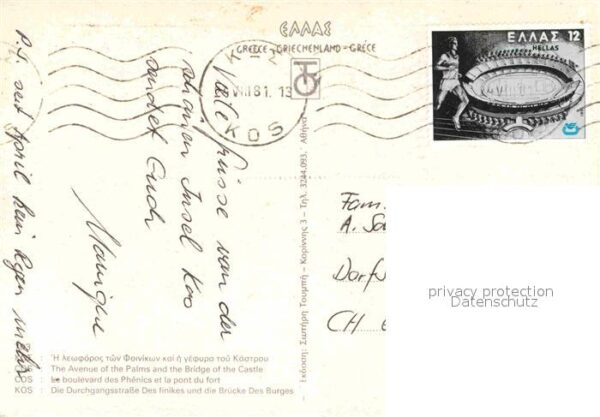 ΕΛΛΑΣ
GREECE - GRIECHENLAND - GRÈCE
ΕΛΛΑΣ 12
HELLAS
ΚΩΣ
VIII 81. 13
KOS
Viele Grüsse von der
schönen Insel Kos
sendet Euch
Monique
P.S. seit April kein Regen mehr
Fam.
A.
Dorf
CH
privacy protection
Datenschutz
Ἔκδοση: Σωτήρη Τουμπῆ - Κορίννης 3 - Τηλ. 3244.093. Ἀθήνα
: Ἡ λεωφόρος τῶν Φοινίκων καί ἡ γέφυρα τοῦ Κάστρου
: The Avenue of the Palms and the Bridge of the Castle
: Le boulevard des Phénics et la pont du fort
KOS : Die Durchgangsstraße Des finikes und die Brücke Des Burges